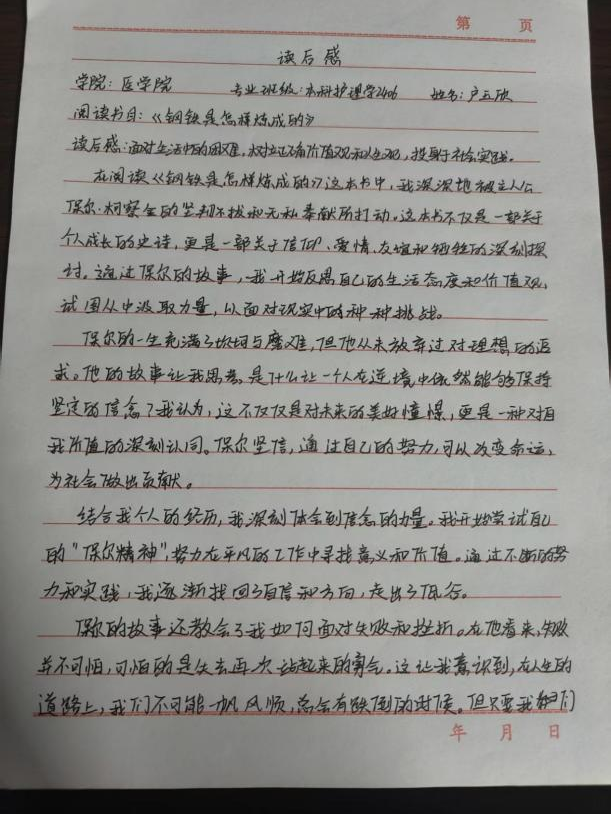 第 页
读后感
学院：医学院 专业班级：本科护理学2406 姓名：卢五欣
阅读书目：《钢铁是怎样炼成的》
读后感：面对生活中的困难，树立正确价值观和人生观，投身于社会实践。
在阅读《钢铁是怎样炼成的》这本书中，我深深地被主人公
保尔·柯察金的坚韧不拔和无私奉献所打动。这本书不仅是一部关于
个人成长的史诗，更是一部关于信仰、爱情、友谊和牺牲的深刻探
讨。通过保尔的故事，我开始反思自己的生活态度和价值观，
试图从中汲取力量，以面对现实中的种种挑战。
保尔的一生充满了坎坷与磨难，但他从未放弃过对理想的追
求。他的故事让我思考，是什么让一个人在逆境中依然能够保持
坚定的信念？我认为，这不仅仅是对未来的美好憧憬，更是一种对自
我价值的深刻认同。保尔坚信，通过自己的努力，可以改变命运，
为社会做出贡献。
结合我个人的经历，我深刻体会到信念的力量。我开始尝试自己
的"保尔精神"，努力在平凡的工作中寻找意义和价值。通过不断的努
力和实践，我逐渐找回了自信和方向，走出了低谷。
保尔的故事还教会了我如何面对失败和挫折。在他看来，失败
并不可怕，可怕的是失去再次站起来的勇气。这让我意识到，在人生的
道路上，我们不可能一帆风顺，总会有跌倒的时候。但只要我们
年 月 日